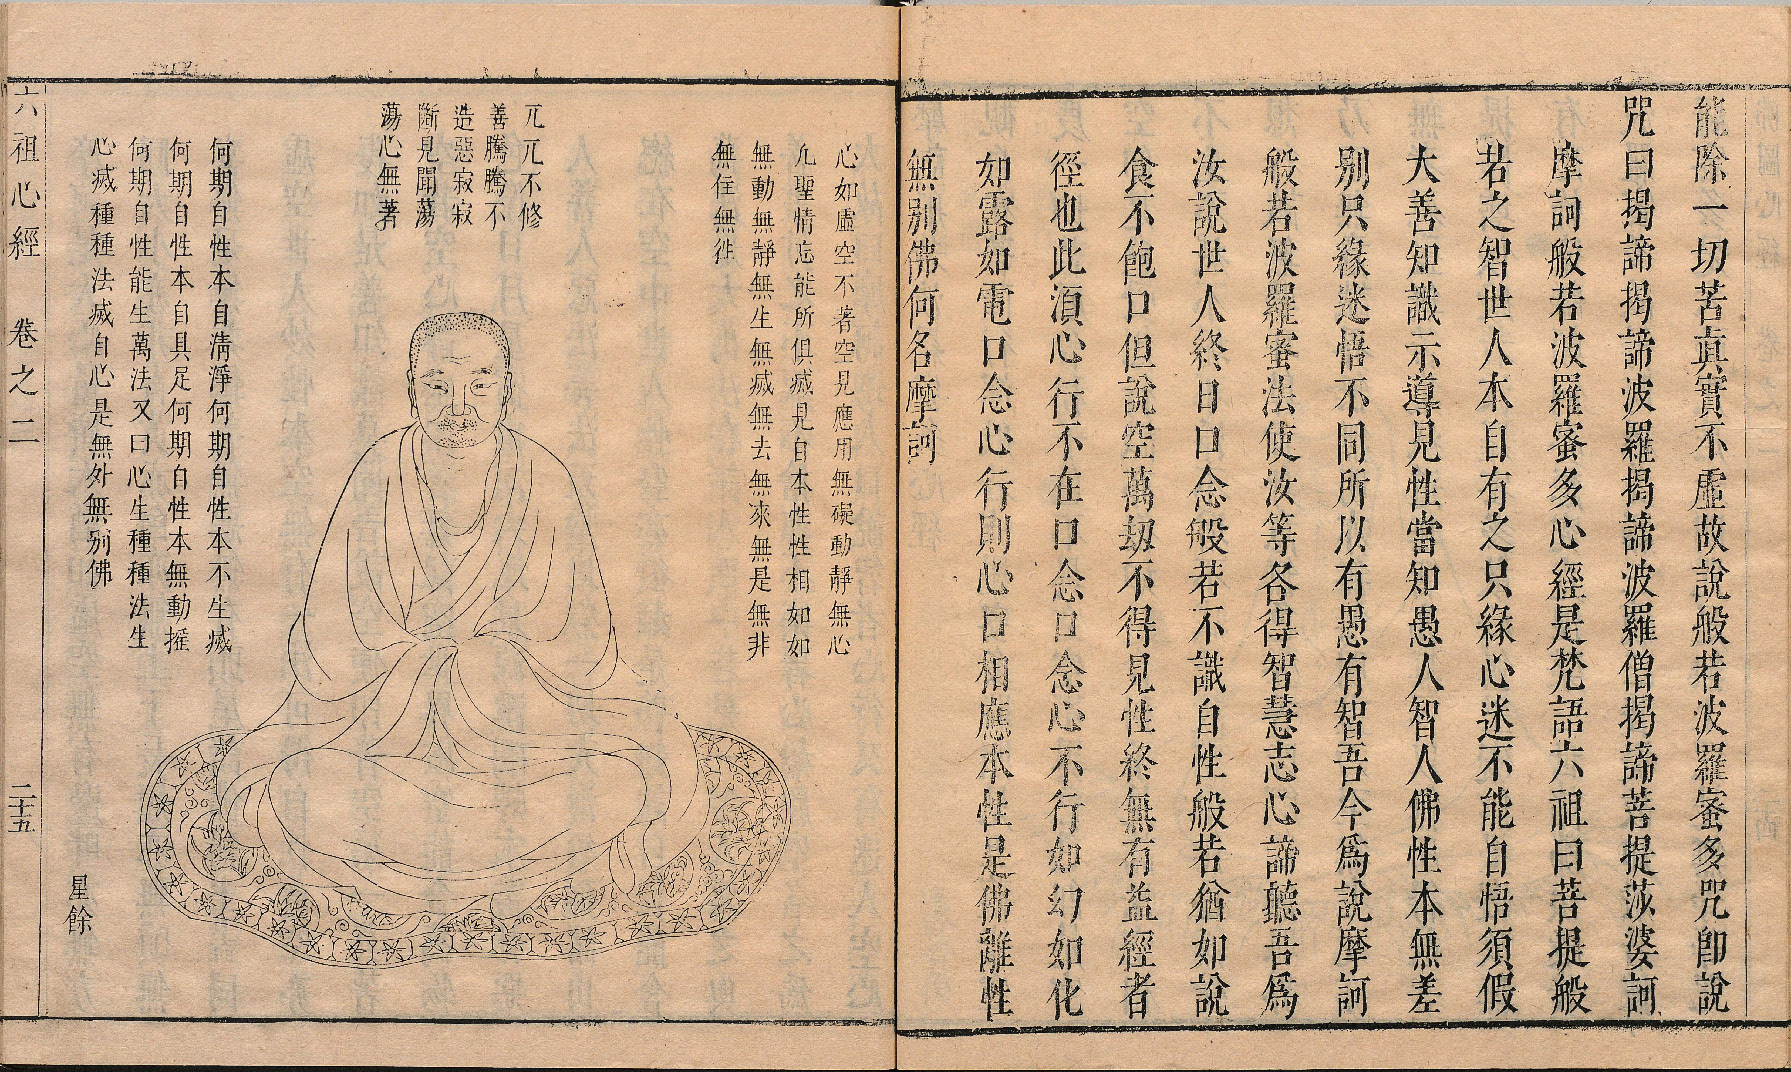 能除一切苦真實不虛故說般若波羅蜜多咒卽說
咒曰揭諦揭諦波羅揭諦波羅僧揭諦菩提莎婆訶
摩訶般若波羅蜜多心經是梵語六祖曰菩提般
若之智世人本自有之只緣心迷不能自悟須假
大善知識示導見性當知愚人智人佛性本無差
別只緣迷悟不同所以有愚有智吾今爲說摩訶
般若波羅蜜法使汝等各得智慧志心諦聽吾爲
汝說世人終日口念般若不識自性般若猶如說
食不飽口但說空萬劫不得見性終無有益經者
徑也此湏心行不在口念口念心不行如幻如化
如露如電口念心行則心口相應本性是佛離性
無別佛何名摩訶
心如虛空不著空見應用無礙動靜無心
凢聖情忘能所俱㓕見自本性性相如如
無動無靜無生無㓕無去無來無是無非
無住無徃
兀兀不修
善騰騰不
造惡寂寂
斷見聞蕩
蕩心無著
何期自性本自淸淨何期自性本不生㓕
何期自性本自具足何期自性本無動搖
何期自性能生萬法又曰心生種種法生
心㓕種種法㓕自心是無外無別佛
星餘
六祖心經 卷之二 二十五